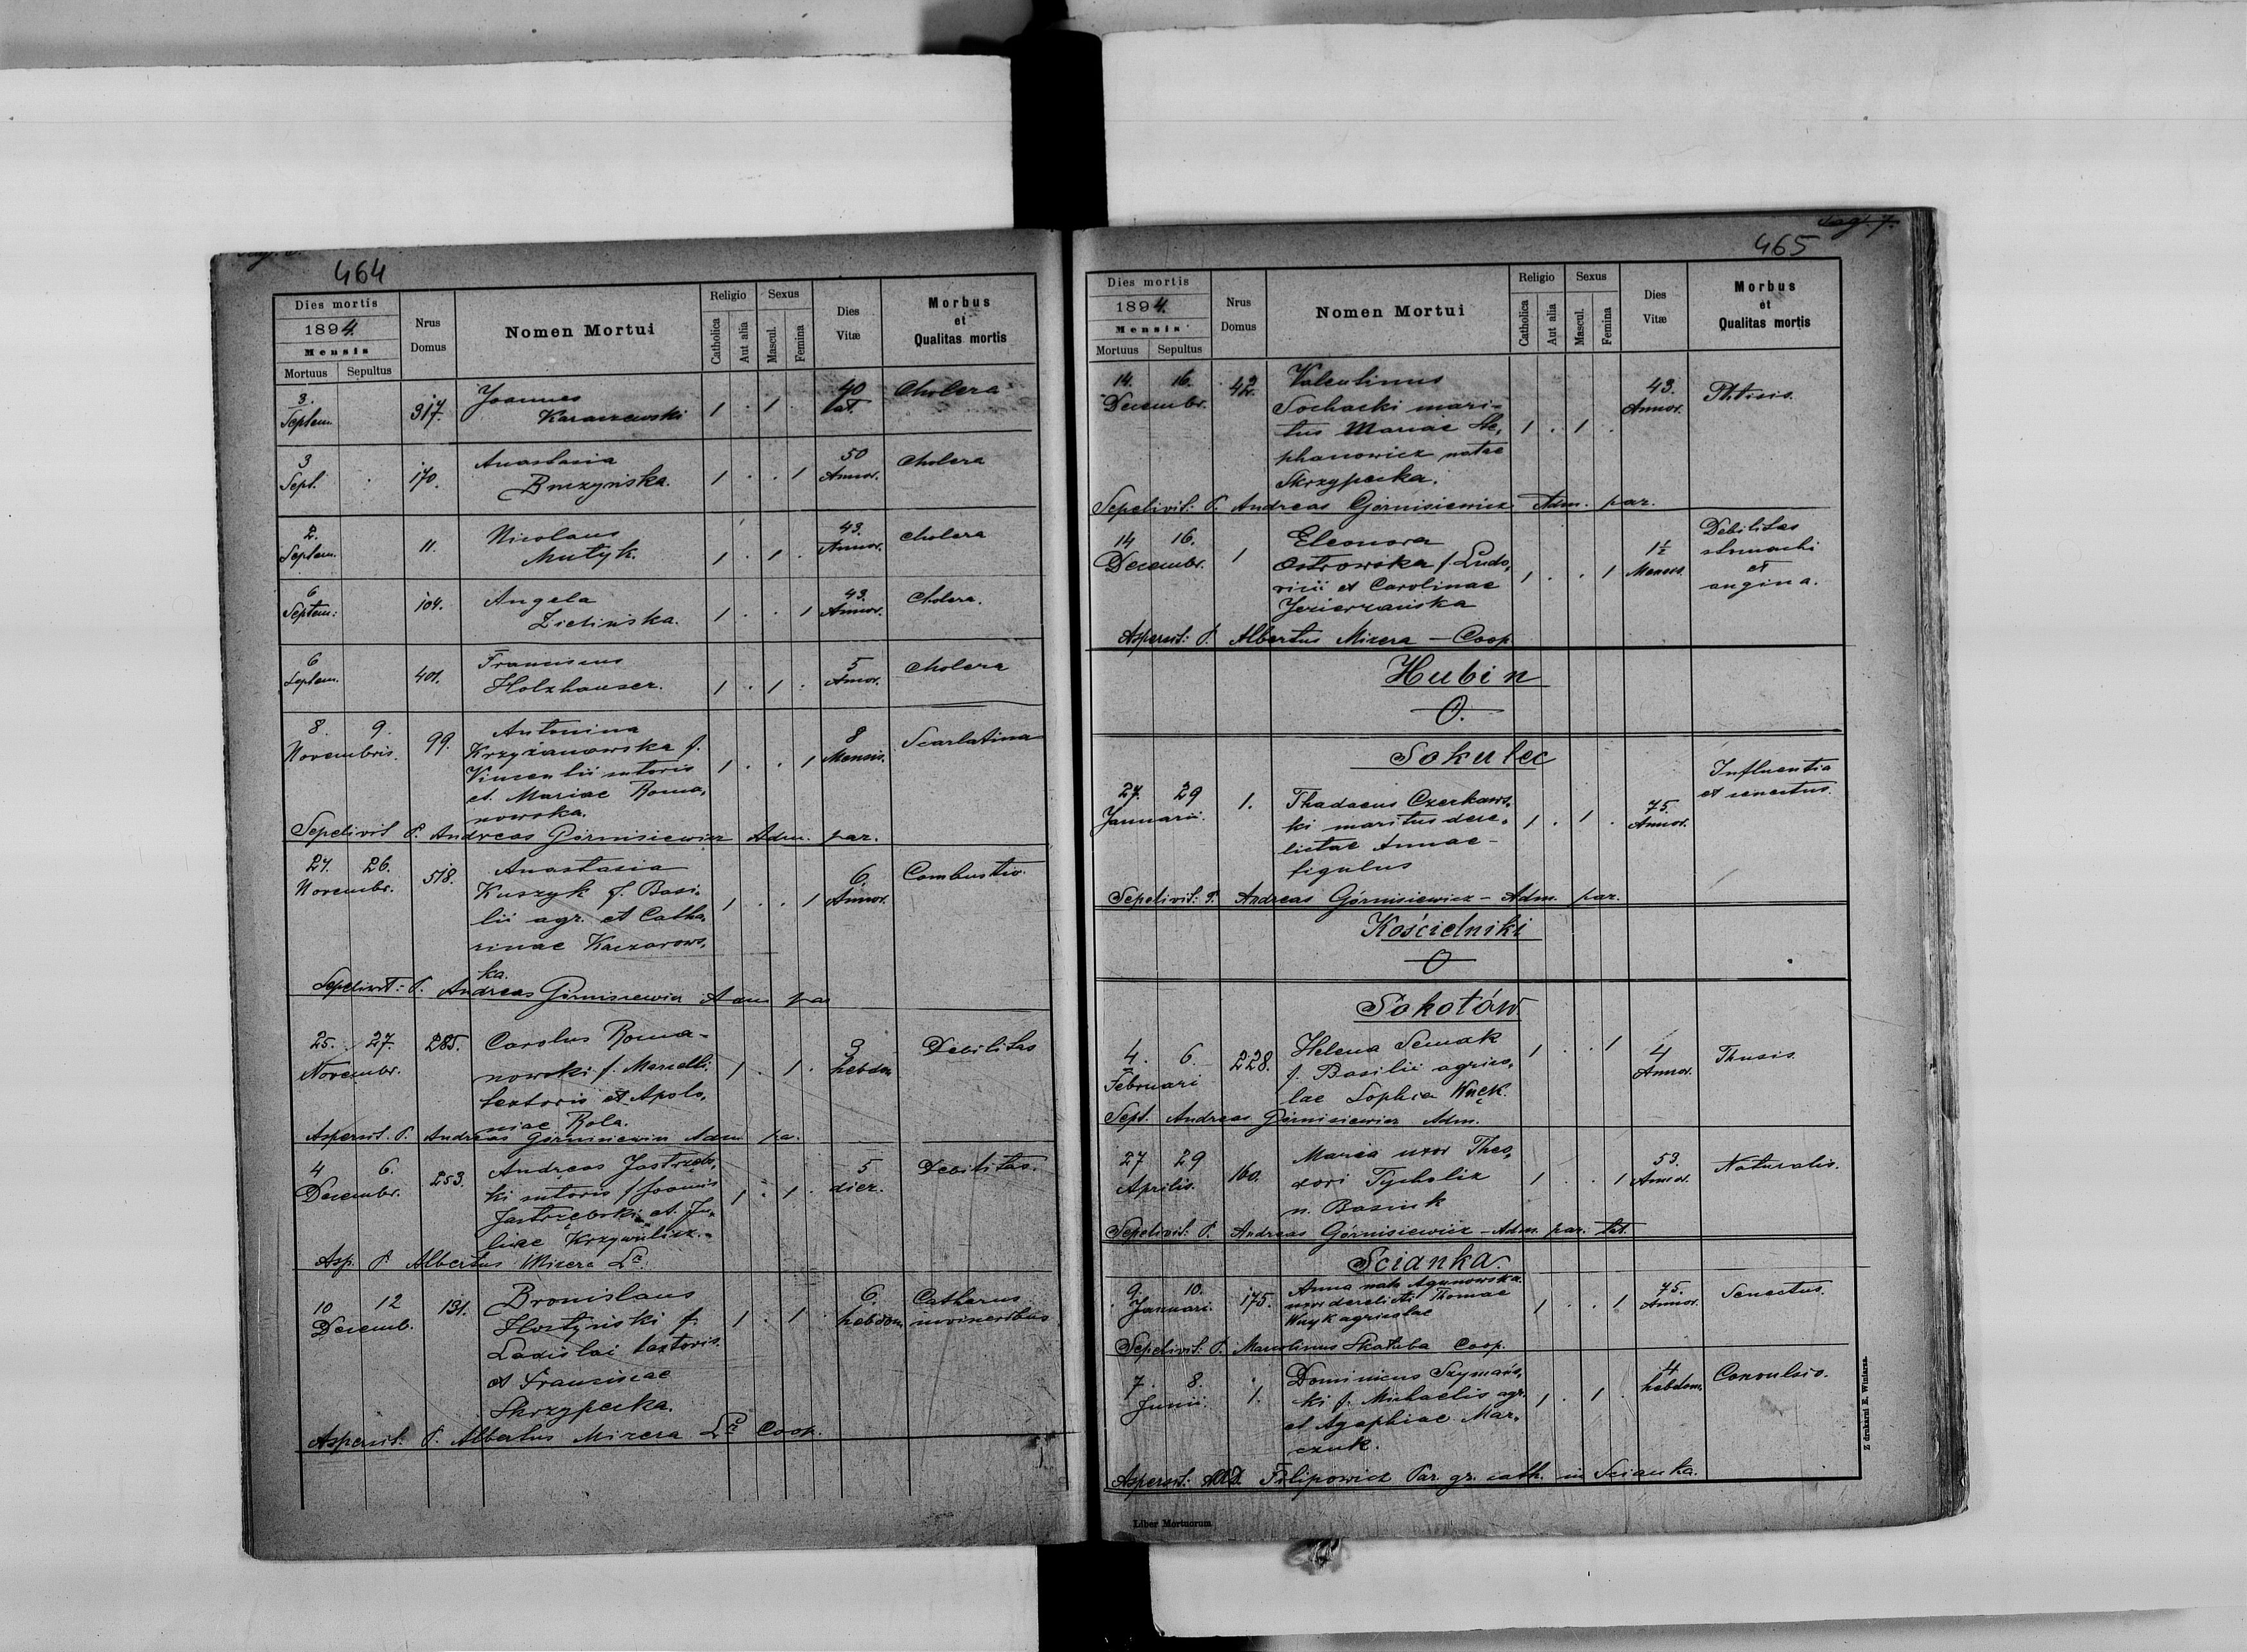 464
Dies mortis
1894.
Mensis
Mortuus Sepultus
Nrus Domus
Nomen Mortui
Religio
Catholica
Aut alia
Sexus
Mascul.
Femina
Dies Vitæ
Morbus et Qualitas mortis
3. Septem. 317. Joannes 1 . 1 . 40 Cholera
Karaszewski
3 Sept. 170. Anastasia 1 . . 1 50 Annor. Cholera
Buczyńska.
2. Septem. 11. Nicolaus 1 . 1 . 43. Annor. Cholera
Mutyk.
6 Septem: 104. Angela 1 . . 1 43. Annor. Cholera.
Zielińska.
6 Septem. 401. Franciscus 1 . 1 . 5 Annor. Cholera
Holzhauser.
8. 9. Novembris. 99. Antonina 1 . . 1 8 Mensis. Scarlatina
Krzyżanowska f.
Vincentii sutoris
et Mariae Roma,
nowska.
Sepelivit P. Andreas Górnisiewicz Adm. par.
24. 26. Novembr. 518. Anastasia 1 . . 1 6. Annor. Combustio.
Kuszyk f. Basi,
lii agr. et Catha,
rinae Kaczorows,
ka.
Sepelivit: P. Andreas Górnisiewicz Adm par
25. 27. Novembr. 285. Carolus Roma- 1 . 1 . 3 hebdom Debilitas
nowski f. Marcelli
textoris et Apolo,
niae Rola.
Aspersit. P. Andreas Górnisiewicz Adm pa.
4 6. Decembr. 253. Andreas Jastrzębs, 1 . 1 . 5 dier. Debilitas.
ki sutoris f. Joannis
Jastrzębski et Ju,
liae Krzywulicz.
Asp. P. Albertus Mizera Lr.
10 12 Decemb. 131. Bronislaus 1 . 1 6. hebdom. Catharus
Hostyński f.
Ladislai textoris.
et Franciscae
Skrzypecka.
Aspersit. P. Albertus Mizera Lr Coop.
465
Dies mortis
1894.
Mensis
Mortuus Sepultus
Nrus Domus
Nomen Mortui
Religio
Catholica
Aut alia
Sexus
Mascul.
Femina
Dies Vitæ
Morbus et Qualitas mortis
14. 16. Decembr. 42. Valentinus 1 . 1 . 43. Annor. Phtisis.
Sochacki mari-
tus Mariae Ste,
phanowicz natae
Skrzypecka.
Sepelivit: P. Andreas Górnisiewicz Adm. par.
14 16. Decembr. 1 Eleonora 1 . . 1 1½ Menses. Debilitas
Ostrowska f. Ludo, stomachi
vici et Carolinae et
Jezierzańska angina.
Aspersit: P. Albertus Mizera - Coop
Hubin
0.
Sokulec
27. 29 Januarii. 1. Thadaeus Czerkaws, 1 . 1 . 75 Annor. Influentia
ki maritus dere, et senectus.
lictae Annae -
figulus
Sepelivit: P. Andreas Górnisiewicz - Adm. par.
Kościelniki
0
Sokołów
4. 6. Februari 228. Helena Semak 1 . . 1 4 Annor. Thusis.
f. Basilii agrico,
lae Sophia Knek.
Sept. Andreas Górnisiewicz Adm.
27 29 Aprilis. 160. Maria uxor Theo, 1 . . 1 53. Annor. Naturalis.
dori Tycholiz
n. Basiuk
Sepelivit: P. Andreas Górnisiewicz - Adm. par. lat.
Scianka.
9. 10. Januari. 175. Anna nata Agunowska. 1 . . 1 75. Annor. Senectus.
uxor derelicti Thomae
Wnyk agricolae
Sepelivit: P. Marcelinus Skałuba Coop.
7. 8. Junii. 1. Dominicus Szymańs, 1 . 1 . 4 hebdom. Convulsio.
ki f. Michaelis agr.
et Agaphiae Mar,
czuk.
Aspersit: Filipowicz Par. gr. cath. in Scianka.
Liber Mortuorum
Z drukarni E. Winiarza.